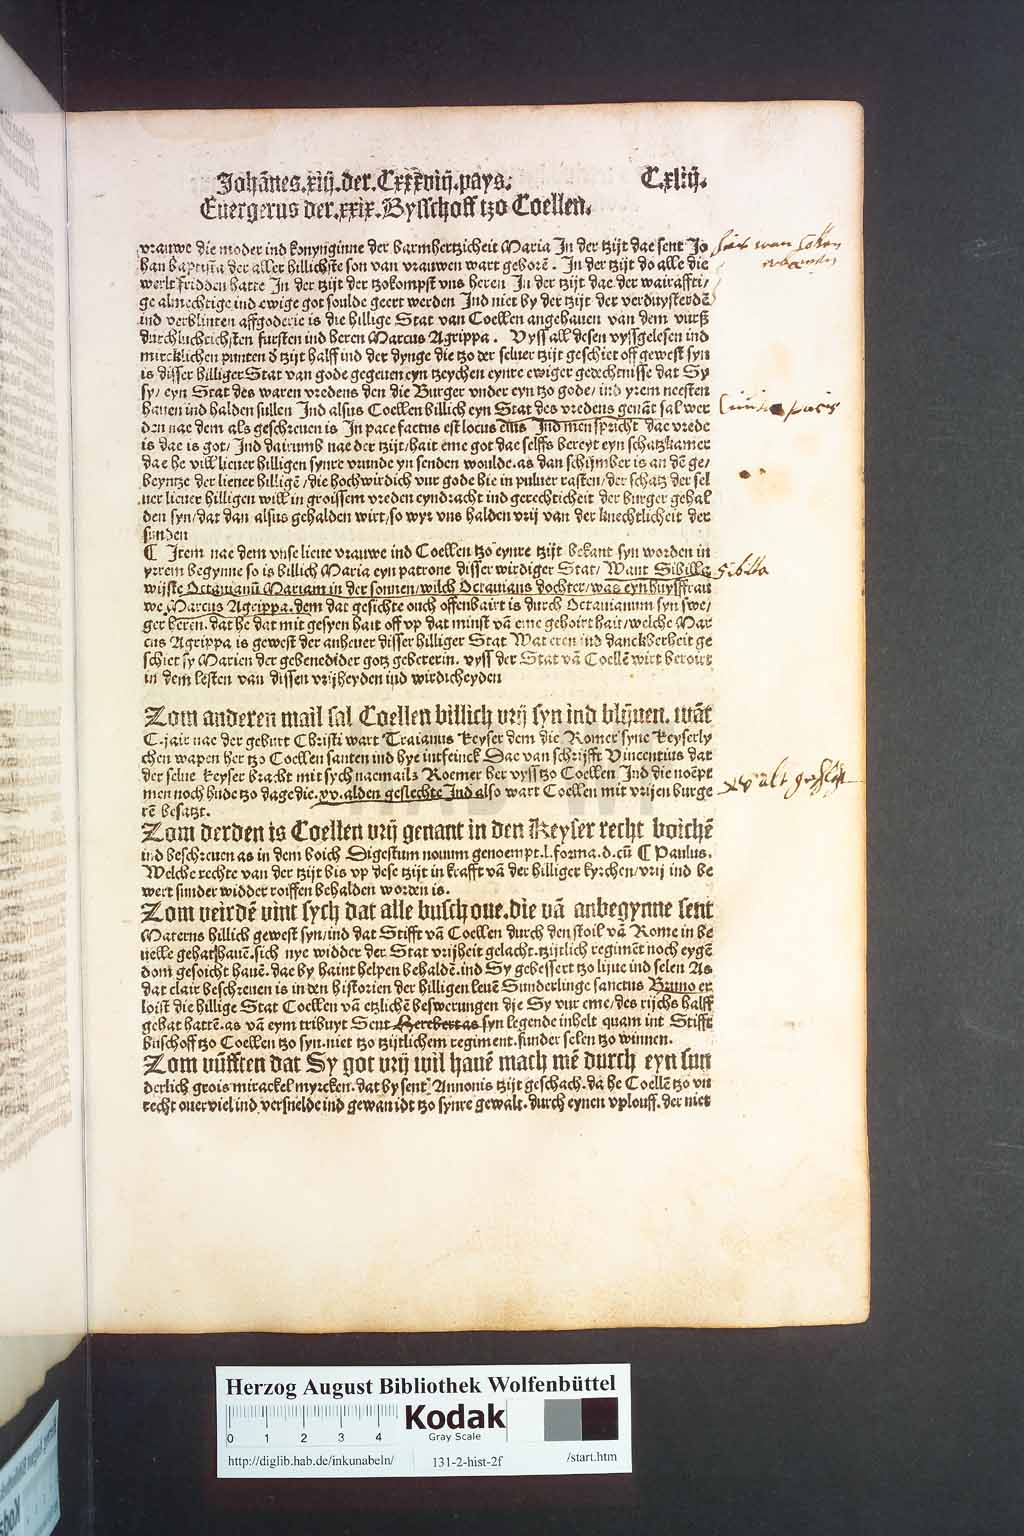 Johānes.xiij.der.Cxxxviij.pays. C.xliij.
Euergerus der.xxix.Bysschoff tzo Coellen.
vrauwe die moder ind konynginne der barmhertzicheit Maria In der tzijt dae sent Jo
han baptista der aller hillichste son van vrauwen wart geborē. In der tzijt do alle die
werlt fridden hatte In der tzijt der tzokompst vns heren In der tzijt dae der wairaffti/
ge almechtige ind ewige got soulde geert werden Ind niet by der tzijt der verduysterdē
ind verblinten affgoderie is die hillige Stat van Coellen angehauen van dem vurß
durchluchtichsten fursten ind heren Marcus Agrippa. Vyss all desen vyssgelesen ind
mircklichen punten d tzijt halff ind der dynge die tzo der seluer tzijt geschiet off gewest syn
is disser hilliger Stat van gode gegeuen eyn tzeychen eynre ewiger gedechtnisse dat Sy
sy/ eyn Stat des waren vredens den die Burger vnder eyn tzo gode/ ind yrem neesten
hauen ind halden sullen Ind alsus Coellen billich eyn Stat des vredens genāt sal wer
den nae dem als geschreuen is In pace factus est locus eius Ind men spricht dae vrede
is dae is got/ Ind dairumb nae der tzijt/hait eme got dae selffs bereyt eyn schatzkamer
dae he vill lieuer hilligen synre vrunde yn senden woulde.as dan schijmber is an dē ge/
beyntze der lieuer hilligē/die hochwirdich vur gode hie in puluer rasten/der schatz der sel
uer lieuer hilligen will in groissem vreden eyndracht ind gerechticheit der burger gehal
den syn/dat dan alsus gehalden wirt/so wyr vns halden vrij van der knechtlicheit der
sunden
¶ Item nae dem vnse lieue vrauwe ind Coellen tzo eynre tzijt bekant syn worden in
yrrem begynne so is billich Maria eyn patrone disser wirdiger Stat/ Want Sibilla
wijste Octauianū Mariam in der sonnen/wilch Octauians dochter/was eyn huysfrau
we Marcus Agrippa.dem dat gesichte ouch offenbairt is durch Octauianum syn swe/
ger heren.dat he dat mit gesyen hait off vp dat minst vā eme gehoirt hait/welche Mar
cus Agrippa is gewest der anheuer disser hilliger Stat Wat eren ind danckberheit ge
schiet sy Marien der gebenedider gotz gebererin. vyss der Stat vā Coellē wirt beroirt
in dem lesten van dissen vrijheyden ind wirdicheyden
Zom anderen mail sal Coellen billich vrij syn ind blijuen. wāt
C.jair nae der geburt Christi wart Traianus keyser dem die Romer syne keyserly
chen wapen her tzo Coellen santen ind hye intfeinck Dae van schrijfft Vincentius dat
der selue keyser bracht mit sych nacmails Roemer her vyss tzo Coellen Ind die noēpt
men noch hude tzo dage die.xv.alden geslechte Ind also wart Coellen mit vrijen burge
rē besatzt.
Zom derden is Coellen vrij genant in den Keyser recht boichē
ind beschreuen as in dem boich Digestum nouum genoempt.l.forma.d.cū ¶ Paulus.
Welche rechte van der tzijt bis vp dese tzijt in krafft vā der hilliger kyrchen/vrij ind be
wert sunder widder roiffen behalden worden is.
Zom veirdē vint sych dat alle buschoue.die vā anbegynne sent
Materns billich gewest syn/ind dat Stifft vā Coellen durch den stoil vā Rome in be
uelle gehat hauē.sich nye widder der Stat vrijheit gelacht.tzijtlich regimēt noch eygē
dom gesoicht hauē.dae by haint helpen behaldē.ind Sy gebessert tzo lijue ind selen As
dat clair beschreuen is in den historien der hilligen leuē Sunderlinge sanctus Bruno er
loist die hillige Stat Coellen vā etzlichē beswerungen die Sy vur eme/des rijchs halff
gehat hattē.as vā eym tribuyt Sent Herebert as syn legende inhelt quam int Stifft
buschoff tzo Coellen tzo syn.niet tzo tzijtlichem regiment.sunder selen tzo winnen.
Zom vūfften dat Sy got vrij wil hauē mach mē durch eyn sun
derlich grois mirackel myrcken.dat by sent Annonis tzijt geschach.da he Coellē tzo vn
recht ouerviel ind versnelde ind gewan idt tzo synre gewalt.durch eynen vplouff.der niet
pacis
Sibilla
xv alt geslecht
Herzog August Bibliothek Wolfenbüttel
0 1 2 3 4
Kodak
Gray Scale
http://diglib.hab.de/inkunabeln/ 131-2-hist-2f /start.htm